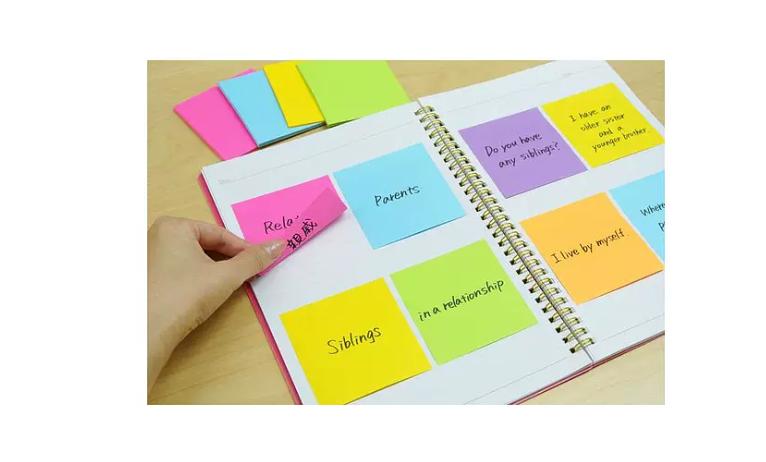 Rela
親戚
Parents
Siblings
in a relationship
Do you have
any siblings?
I have an
older sister
and a
younger brother.
I live by myself.
Where